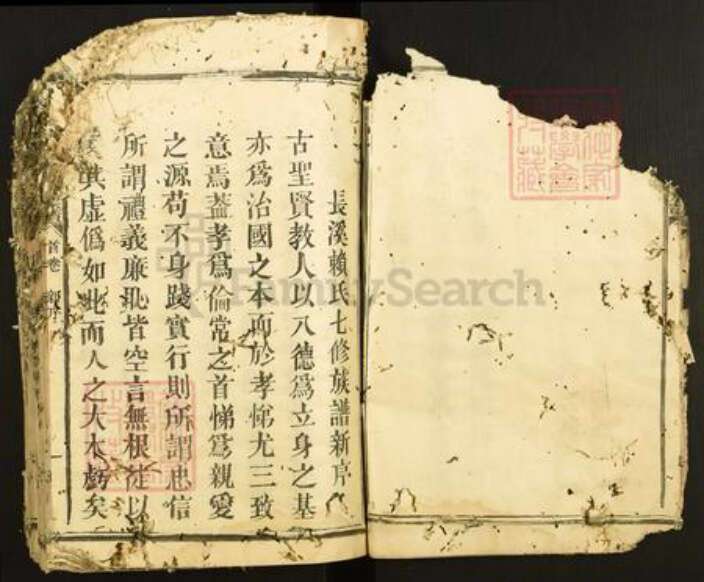 長溪賴氏七修族譜新序
古聖賢教人以八德爲立身之基
亦爲治國之本而於孝悌尤三致
意焉葢孝爲倫常之首悌爲親愛
之源苟不身踐實行則所謂忠信
所謂禮義廉恥皆空言無根徒以
其虛僞如此而人之大本虧矣
首卷 新序 一
FamilySearch